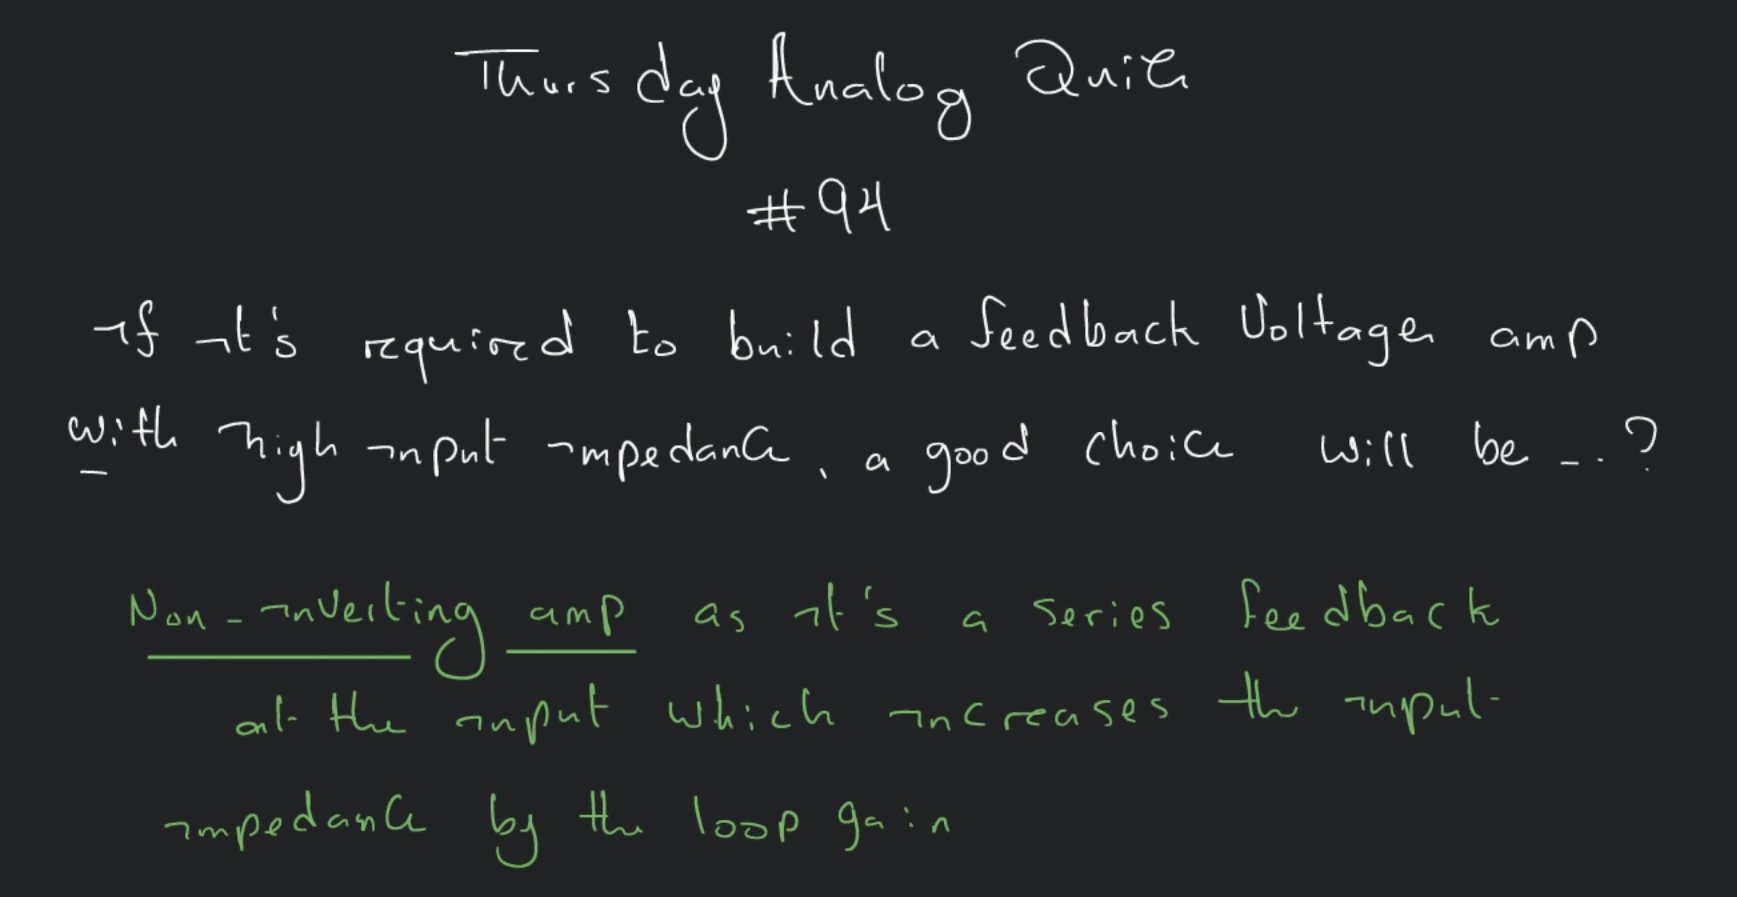 Thursday Analog Quiz
#94
if it's required to build a feedback Voltage amp
with high input impedance, a good choice will be ...?
Non-inverting amp as it's a series feedback
at the input which increases the input
impedance by the loop gain